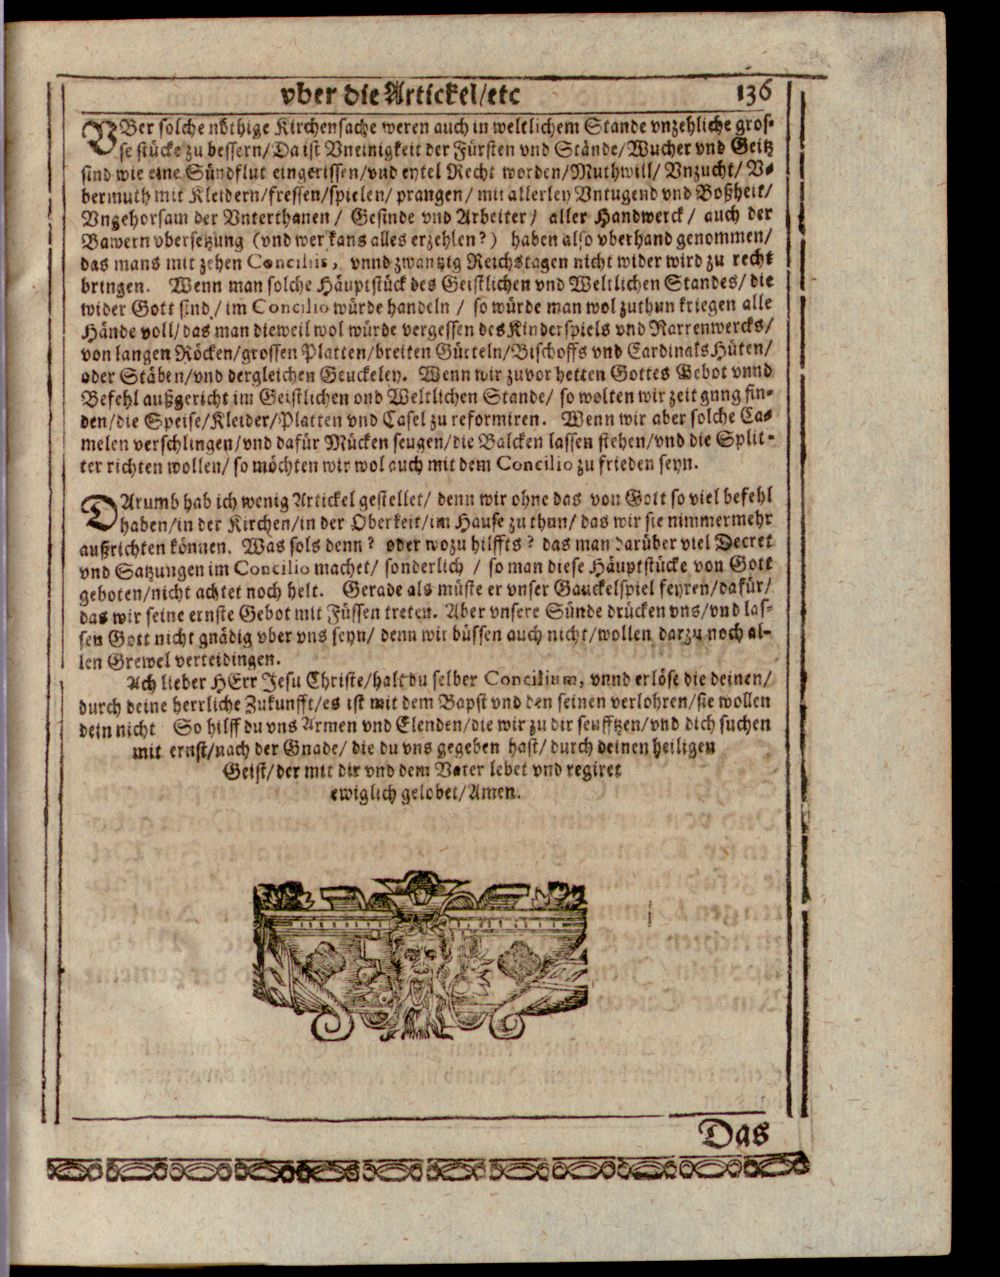 vber die Artickel/etc 136
VBer solche nöthige Kirchensache weren auch in weltlichem Stande vnzehliche gros-
se stücke zu bessern/Da ist Vneinigkeit der Fürsten vnd Stände/Wucher vnd Geitz
sind wie eine Sündflut eingerissen/vnd eytel Recht worden/Muthwill/Vnzucht/V-
bermuth mit Kleidern/fressen/spielen/prangen/mit allerley Vntugend vnd Boßheit/
Vngehorsam der Vnterthanen/ Gesinde vnd Arbeiter/ aller Handwerck/ auch der
Bawern vbersetzung (vnd wer kans alles erzehlen?) haben also vberhand genommen/
das mans mit zehen Conciliis, vnnd zwantzig Reichstagen nicht wider wird zu recht
bringen. Wenn man solche Häuptstück des Geistlichen vnd Weltlichen Standes/ die
wider Gott sind/ im Concilio würde handeln / so würde man wol zuthun kriegen alle
Hände voll/das man dieweil wol würde vergessen des Kinderspiels vnd Narrenwercks/
von langen Röcken/grossen Platten/breiten Gürteln/Bischoffs vnd Cardinals Hüten/
oder Stäben/vnd dergleichen Geuckeley. Wenn wir zuvor hetten Gottes Gebot vnnd
Befehl außgericht im Geistlichen ond Weltlichen Stande/ so wolten wir zeit gnng fin-
den/die Speise/Kleider/Platten vnd Casel zu reformiren. Wenn wir aber solche Ca-
melen verschlingen/vnd dafür Mücken seugen/die Balcken lassen stehen/vnd die Split-
ter richten wollen/ so möchten wir wol auch mit dem Concilio zu frieden seyn.
DArumb hab ich wenig Artickel gestellet/ denn wir ohne das von Gott so viel befehl
haben/in der Kirchen/in der Oberkeit/im Hause zu thun/ das wir sie nimmermehr
außrichten können. Was sols denn? oder wozu hilffts? das man darüber viel Decret
vnd Satzungen im Concilio machet/ sonderlich / so man diese Häuptstücke von Gott
geboten/nicht achtet noch helt. Gerade als müste er vnser Gauckelspiel feyren/dafür/
das wir seine ernste Gebot mit Füssen treten. Aber vnsere Sünde drücken vns/vnd las-
sen Gott nicht gnädig vber vns seyn/ denn wir büssen auch nicht/wollen darzu noch al-
len Grewel verteidingen.
Ach lieber HErr Jesu Christe/halt du selber Concilium, vnnd erlöse die deinen/
durch deine herrliche Zukunfft/es ist mit dem Bapst vnd den seinen verlohren/sie wollen
dein nicht So hilff du vns Armen vnd Elenden/die wir zu dir seufftzen/vnd dich suchen
mit ernst/nach der Gnade/ die du vns gegeben hast/ durch deinen heiligen
Geist/der mit dir vnd dem Vater lebet vnd regiret
ewiglich gelobet/Amen.
Das